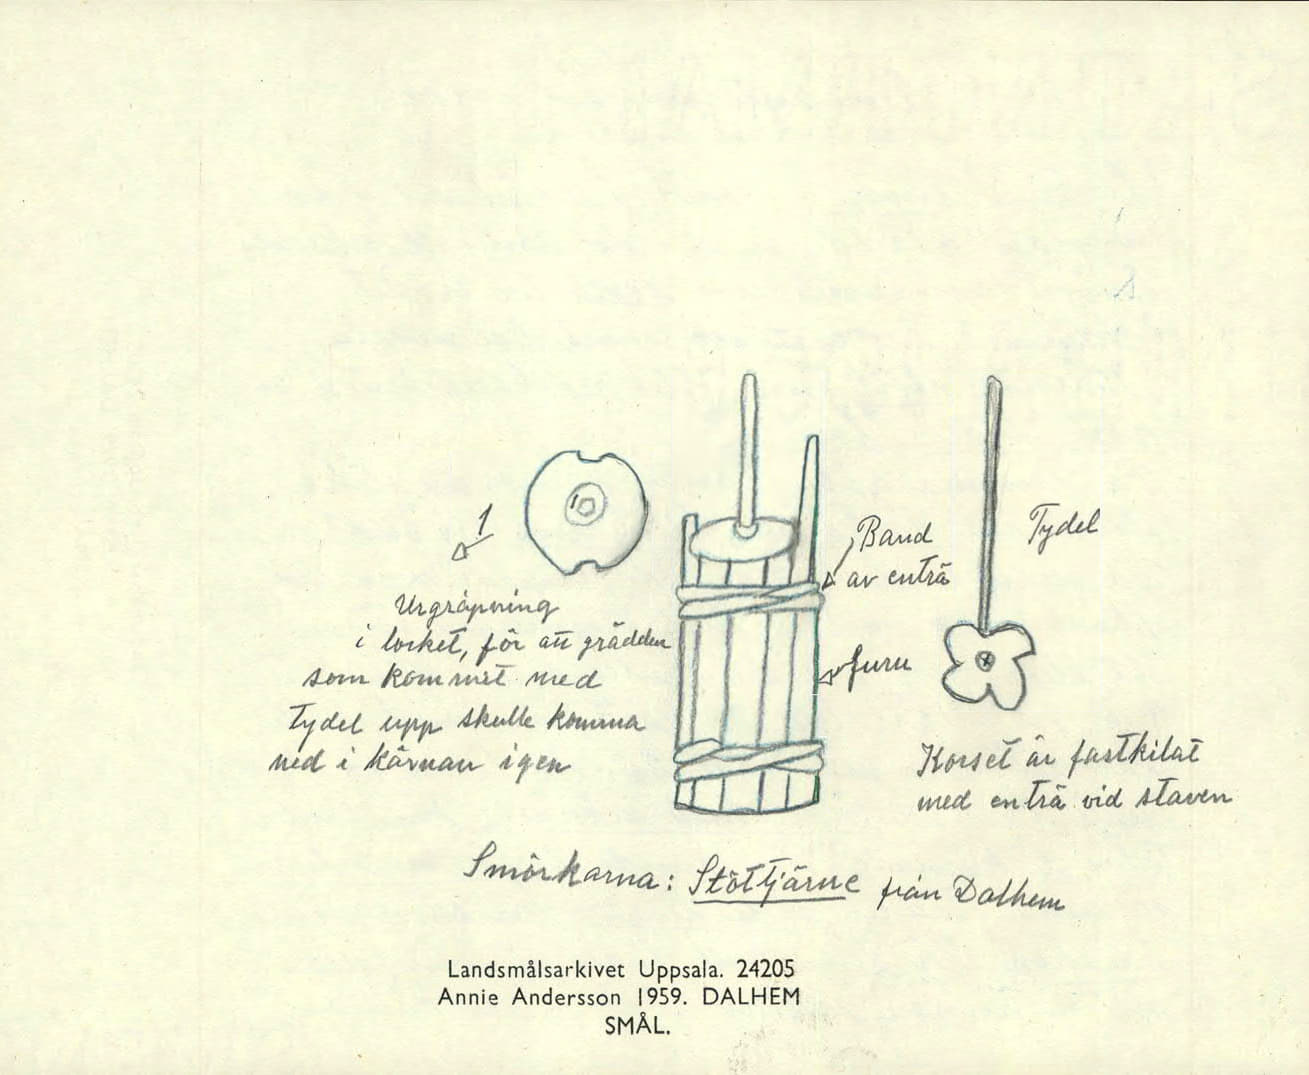 1
Urgröpning
i locket, för att grädden
som kommit med
Tydel upp skulle komma
ned i kärnan igen
Band
av enträ
furu
Tydel
Korset är fastkilat
med enträ vid staven
Smörkärna: Stöttjärne från Dalhem
Landsmålsarkivet Uppsala. 24205
Annie Andersson 1959. DALHEM
SMÅL.